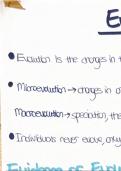 E
Evolution Is the changes in
Microevolution → changes in
Macroevolution → speciation, the
Individuals never evolve, only
Evidence of Evol